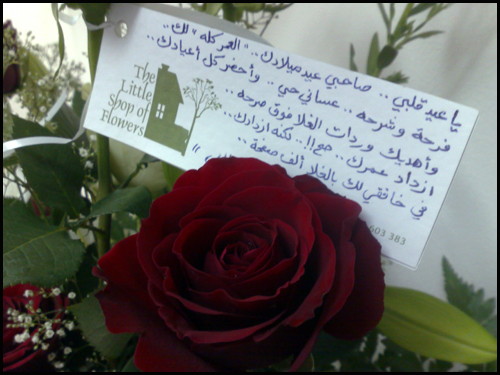 يا عيد قلبي.. صاحبي عيد ميلادك.. "العمر كله" لك..
فرحة وشرحه.. عساني حي.. وأحضر كل أعيادك..
وأهديك وردات الغلا فوق مرحه..
ازداد عمرك.. صح!!.. لكنه ازدادك..
في خافقي لك بالغلا ألف صفحة..
The
Little
Shop of
Flowers
603 383